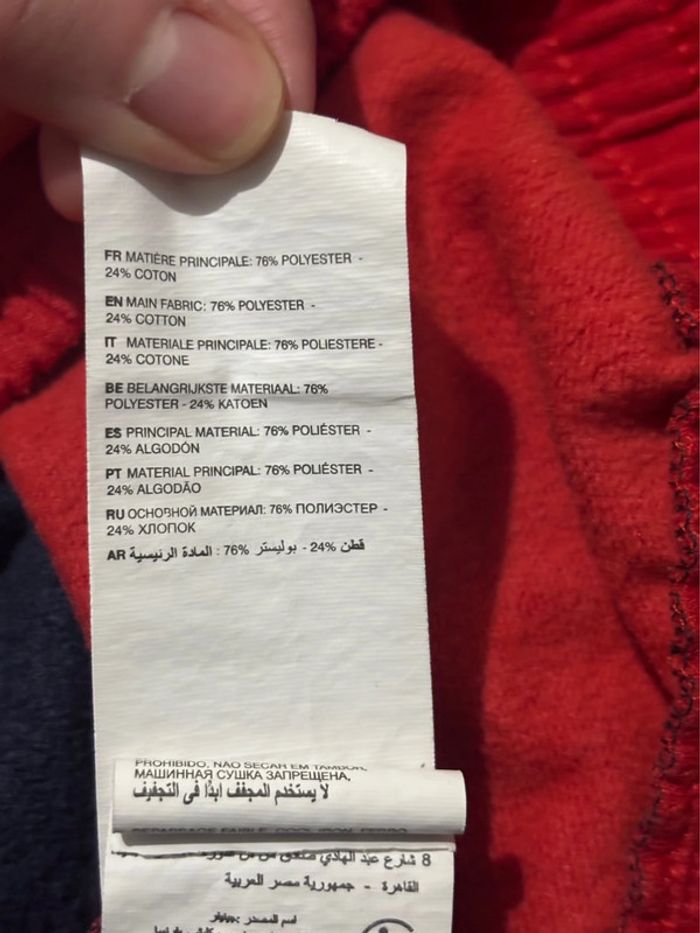 FR MATIÈRE PRINCIPALE: 76% POLYESTER -
24% COTON
EN MAIN FABRIC: 76% POLYESTER -
24% COTTON
IT MATERIALE PRINCIPALE: 76% POLIESTERE -
24% COTONE
BE BELANGRIJKSTE MATERIAAL: 76%
POLYESTER - 24% KATOEN
ES PRINCIPAL MATERIAL: 76% POLIÉSTER -
24% ALGODÓN
PT MATERIAL PRINCIPAL: 76% POLIÉSTER -
24% ALGODÃO
RU ОСНОВНОЙ МАТЕРИАЛ: 76% ПОЛИЭСТЕР -
24% ХЛОПОК
AR المادة الرئيسية : 76% بوليستر - 24% قطن
PROHIBIDO, NAO SECAR EM TAMBOR,
МАШИННАЯ СУШКА ЗАПРЕЩЕНА,
لا يستخدم المجفف ابدًا فى التجفيف
REPASSAGE FAIBLE, COOL IRON, FERRO
8 شارع عبد الهادي
القاهرة - جمهورية مصر العربية
اسم المصدر :